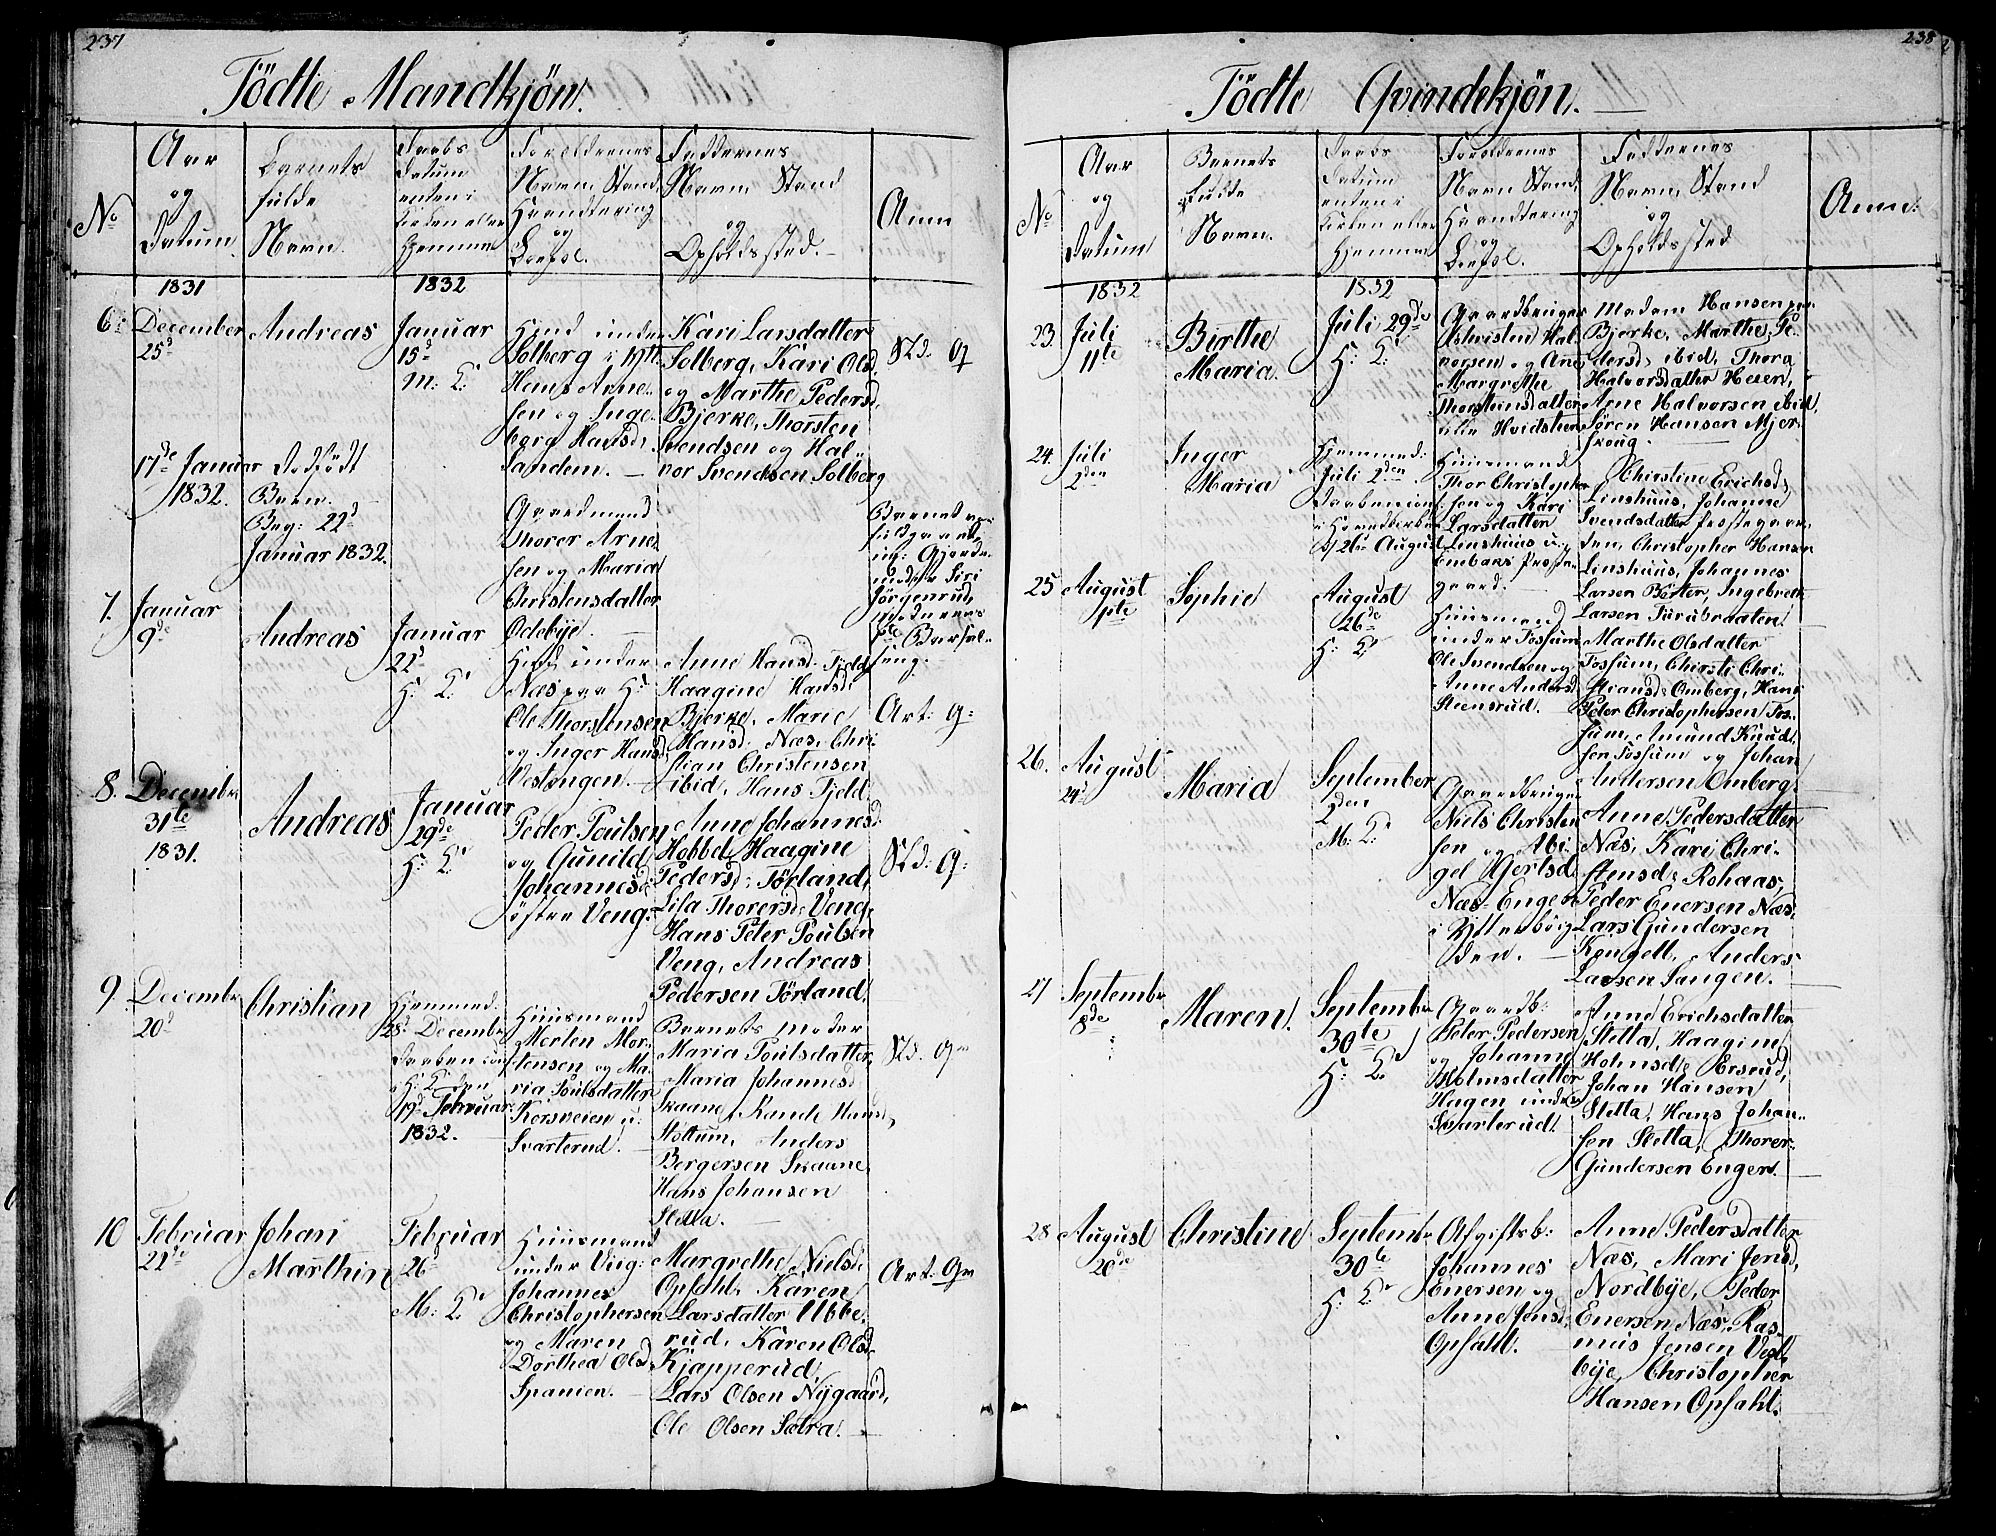 237
Födte Mandkjön.
No
Aar
og
Datum.
Barnets
fulde
Navn.
Daabs
Datum
enten i
Kirken eller
Hjemme
Forældrenes
Navn Stand
Haandtering
og
Bopæl.
Faddernes
Navn Stand
og
Opholdssted.
Anm
1831
1832
6:
December
25d
Andreas
Januar
15d
M: K:
Huusmd under
Solberg i
Hans Arne-
sen og Inge-
borg Hansd:
Sanden.
Kari Larsdatter
Solberg, Kari Olsd.
og Marthe Pedersd.
Bjerke, Thorsten
Svendsen og Hal-
vor Svendsen Solberg
17de Januar
1832.
Dødfödt
Barn.
Beg: 22d
Januar 1832.
Gaardmand
Thorer Arne-
sen og Maria
Christensdatter
Odebye.
Barnet var
fuldbaaret
Gjorde-
moder Siri
Jörgenrud,
Moderens
Barsel-
seng.
7.
Januar
9de
Andreas
Januar
22d
H: K:
under
Næs paa
Ole Thorstensen
og Inger Hansd
Vestengen.
Anne Hansd: Fjeld
Haagine Hansd:
Bjerke, Marie
Hansd: Næs, Chri-
stian Christensen
ibid, Hans Fjeld.
Art: G:
8.
Decembr
31te
1831.
Andreas
Januar
29de
H: K:
Peder Poulsen
og Gunild
Johannesd:
östre Veng.
Anne Johannesd:
Hobbel, Haagine
Pedersd: Törland,
Lisa Thorersd: Veng,
Hans Peter Poulsen
Veng, Andreas
Pedersen Törland.
Sld: G:
9.
Decembr
20d
Christian
Hjemmed:
28d Decembr
Daaben conf:
i H: K: den
19d Februar
1832.
Huusmand
Morten Mor-
tensen og Ma-
ria Poulsdatter
Korsveien u:
Svarterud.
Barnets Moder
Maria Poulsdatter,
Maria Johannesd
Skaane, Rande Hansd,
Stoltum, Anders
Bergersen Skaane,
Hans Johansen
Sletta.
Sld. G:
10
Februar
22de
Johan
Marthin
Februar
26de
M: K:
Huusmand
under Ving:
Johannes
Christophersen
og Maren
Dorthea Olsd.
Spanien.
Margrethe Nielsd:
Opsahl, Karen
Larsdatter Ubbe-
rud, Karen Olsd.
Kjapperud,
Lars Olsen Nygaard,
Ole Olsen Sætra.
Art: G:
238
Födte Qvindekjön.
No
Aar
og
Datum
Barnets
Fulde
Navn.
Daabs
Datum
enten i
Kirken eller
Hjemme
Forældrenes
Navn Stand,
Haandtering
og
Bopæl.
Faddernes
Navn, Stand
og
Opholdssted
Anm:
1832
1832
23.
Juli
11te
Birthe
Maria.
Juli 29de
H: K:
Gaardbruger
Christen Hal-
vorsen og Ane
Margrethe
Thorsteinsdatter
lille Hvidsten
Madam Hansen paa
Bjerke, Marthe Pe-
dersd: ibid, Thora
Halvorsdatter Heier,
Arne Halvorsen ibid,
Sören Hansen Mjör-
skoug.
24.
Juli
2den
Inger
Maria
Hjemmed:
Juli 2den
Daaben conf:
i Hovedkirken
26de August
Huusmand
Thor Christopher-
sen og Kari
Larsdatter
Linshuus u:
Præste-
gaard.
Christine Erichsd:
Linshuus, Johanne
Svendsdatter Præstegaar-
den, Christopher Hansen
Linshuus, Johannes
Larsen, Ingebreth
Larsen Furubraaten.
25
August
1ste
Sophie
August
26de
H: K:
Huusmand
under Fossum
Ole Svendsen og
Anne Andersd
Steensrud.
Marthe Olsdatter
Fossum, Chirsti Chri-
stiansd: Omberg, Hans
Peter Christophersen Fos-
sum, Amund Knud-
sen Fossum og Johan
Andersen Omberg.
26.
August
24d
Maria
September
2den
M: K:
Gaardbruger
Niels Christen-
sen og Abi-
gel Hjertsd:
Næs-Engen
Anne Pedersdatter
Næs, Kari Chri-
stensd: Rohaas,
Peder Enersen Næs,
Lars Gundersen
Kongell, Anders
Larsen Langen.
27
Septembr
8de
Maren.
Septembr
30te
H: K:
Gaardb:
Peter Pedersen
og Johanne
Holmsdatter
Hagen under
Svarterud.
Anne Erichsdatter
Sletta, Haagine
Holmsd: Ersrud,
Johan Hansen
Sletta, Hans Johan-
sen Sletta, Thorer
Gundersen Engen.
28
August
20de
Christine
Septembr
30te
H: K:
Afgiftsb:
Johannes
Enersen og
Anne Jensd:
Opsahl.
Anne Pedersdatter
Næs, Mari Jensd,
Nordbye, Peder
Enersen Næs, Ras-
mus Jensen Vest-
bye, Christopher
Hansen Opsahl.